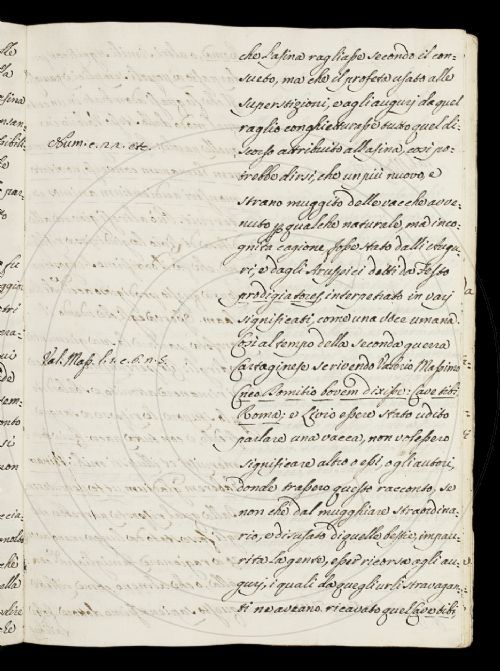 che l'asina ragliasse secondo il con-
sueto, ma che il profeta usato alle
superstizioni, e agli augurj da quel
raglio conghietturasse tutto quel di-
Num. c. 22. etc.
scorso attribuito all'asina, così po-
trebbe dirsi, che un più nuovo, e
strano muggito delle vacche avve-
nuto p qualche naturale, ma inco-
gnita cagione fosse stato dalli Augu-
ri, e dagli Aruspici detti da Festo
prodigiatores, interpretato in varj
significati, come una voce umana.
Così al tempo della seconda guerra
Val. Mass. l. 1. c. 6. n. 5.
Cartaginese scrivendo Valerio Massimo
Cneo Domitio bovem dixisse: Cave tibi
Roma: e Livio essere stato udito
parlare una vacca, non volessero
significare altro o essi, o gli autori,
donde trassero questo racconto, se
non chè dal mugghiare straordina-
rio, e disusato di quelle bestie, impau-
rita la gente, e sen ricorsa agli au-
guri, i quali da quegli urli stravagan-
ti ne aveano ricavato quel Cave tibi,